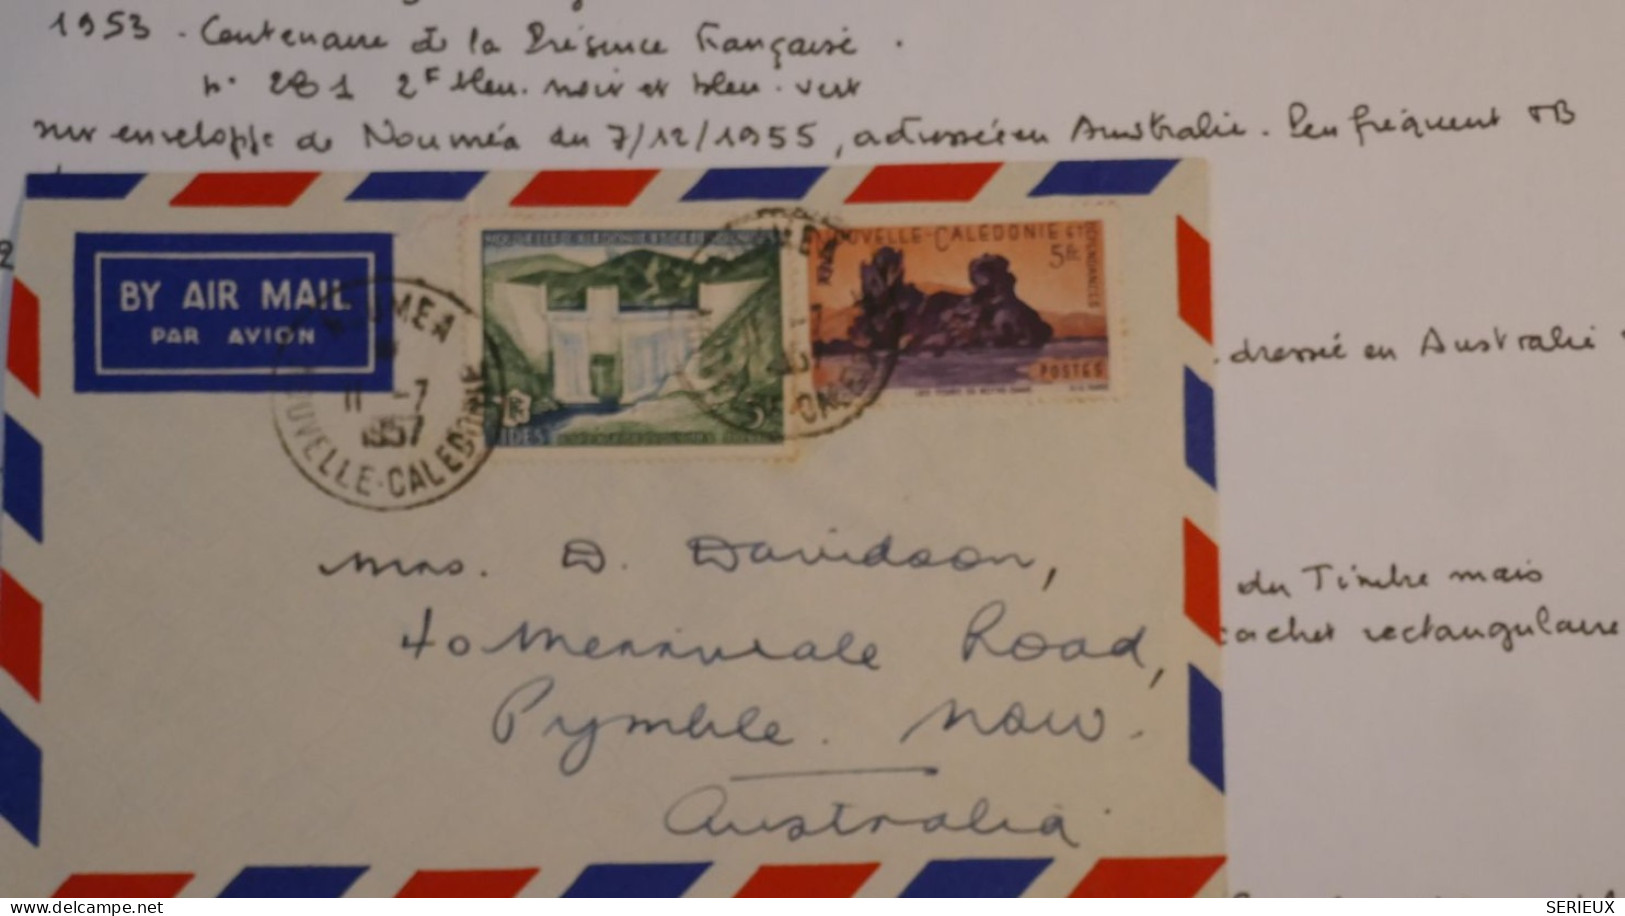 1953. Centenaire de la Présence Française.
n° 281 2F bleu-noir et bleu-vert
sur enveloppe de Nouméa du 7/12/1955, adressée en Australie. Peu fréquent TB
BY AIR MAIL
PAR AVION
NOUMEA
11 -7
1957
NOUVELLE-CALEDONIE
5F
NOUVELLE-CALEDONIE ET
DEPENDANCES
5fr
POSTES
dressée en Australie
Mrs. D. Davidson,
40 Merrivale Road,
Pymble. NSW.
Australia.
du Timbre mais
cachet rectangulaire
delcampe.net
SERIEUX